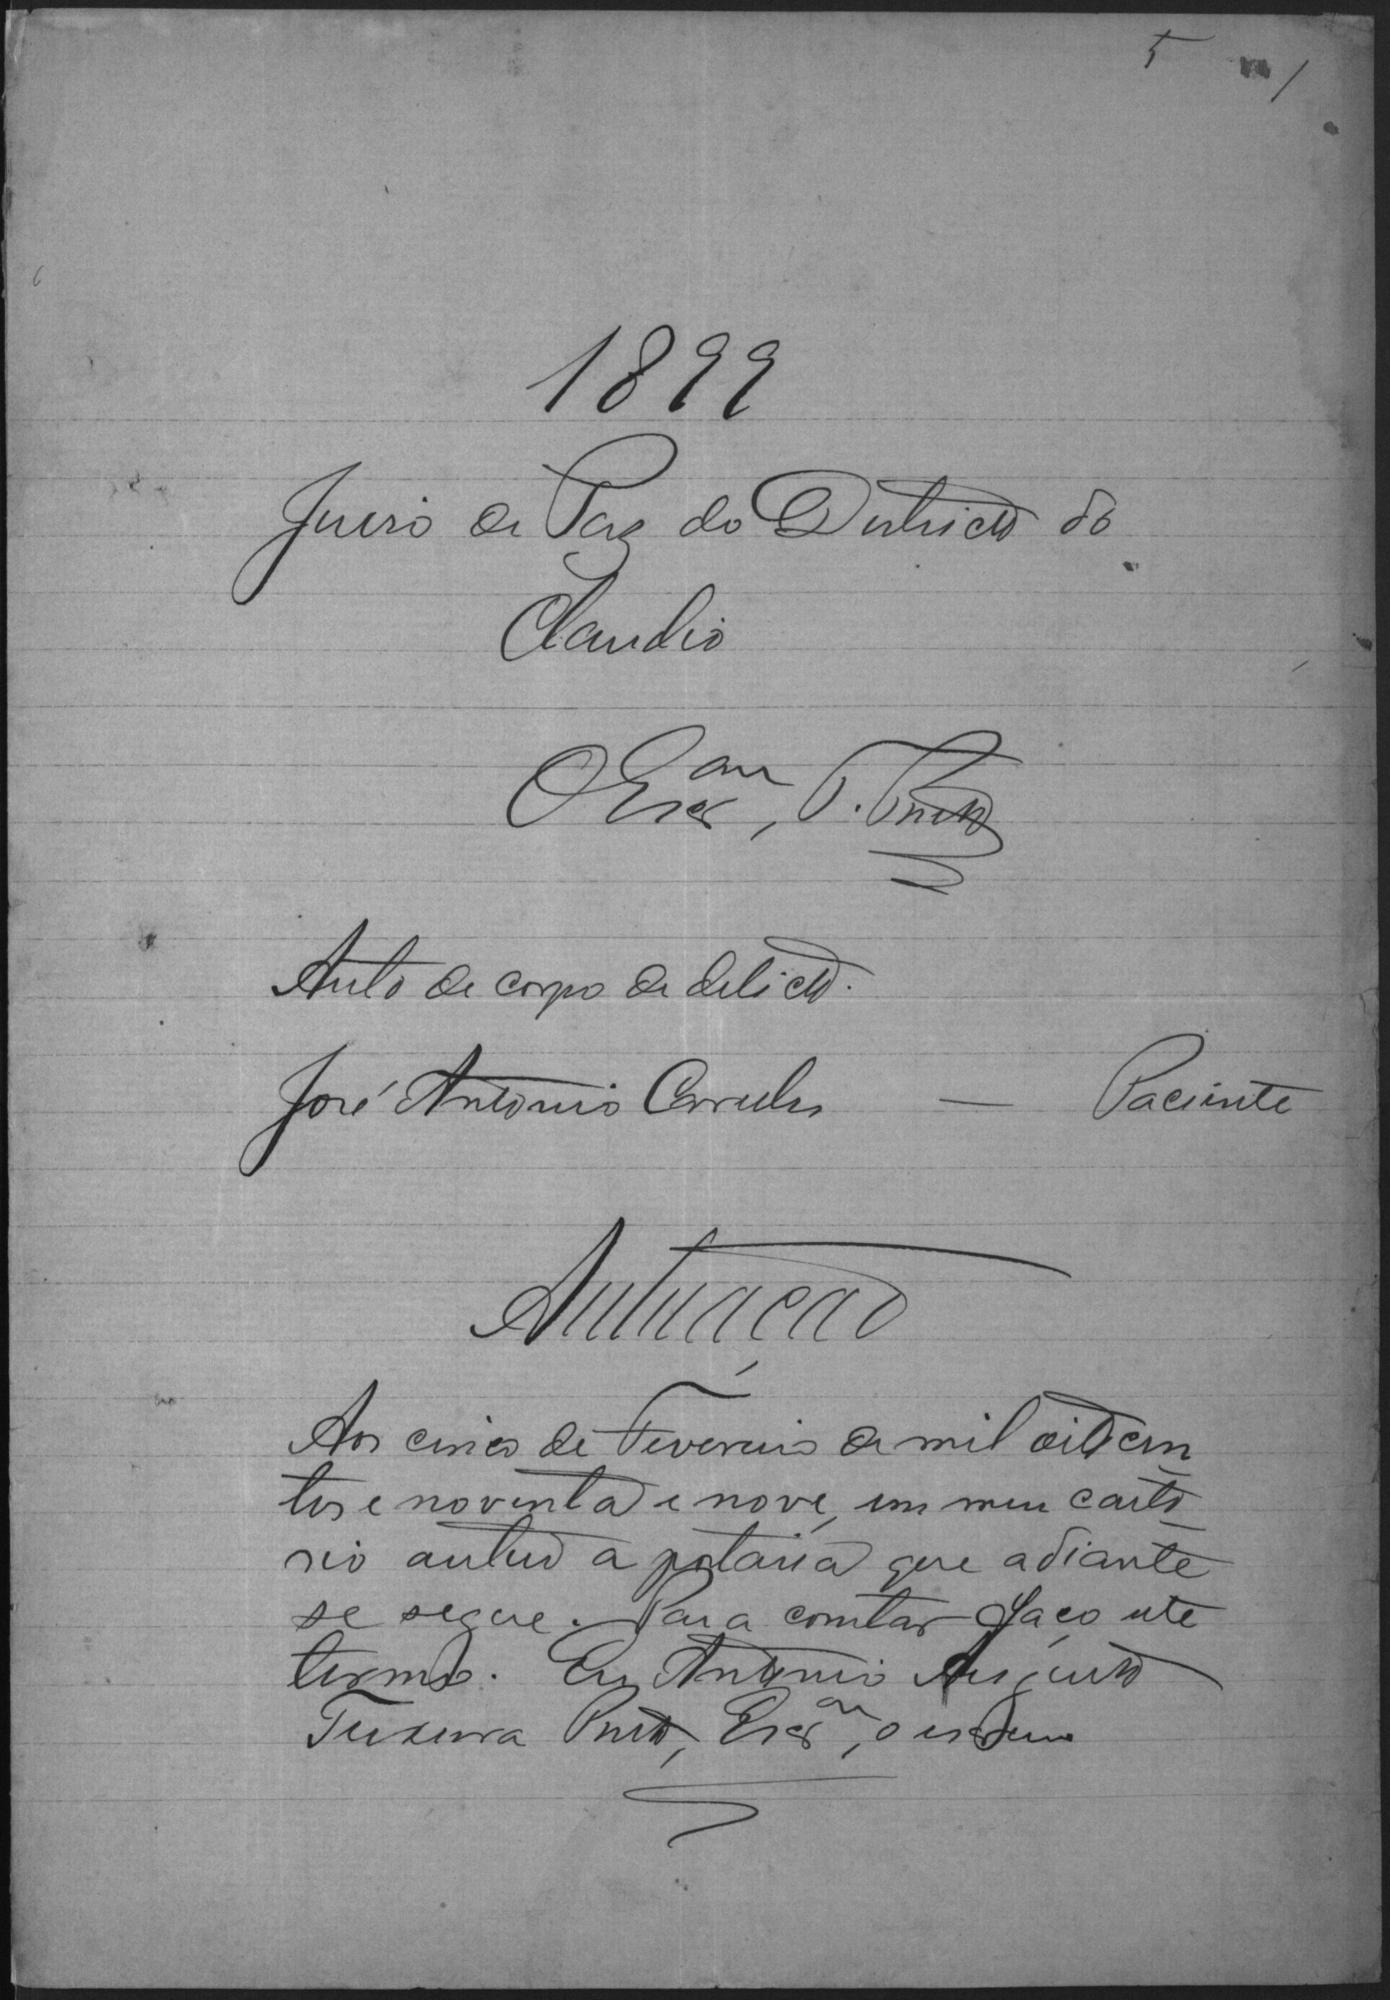 5 1
1899
Juiso de Paz do Districto do
Claudio
O Escr.am, T. Pinto
Auto de corpo de delicto.
José Antonio — Paciente
Autuação
Aos cinco de Fevereiro de mil oitocen
tos e noventa e nove, em meu carto
rio autuo a portaria que adiante
se segue. Para constar faço este
termo. Eu Antonio Augusto
Teixeira Pinto, Escr.am, o escrevo